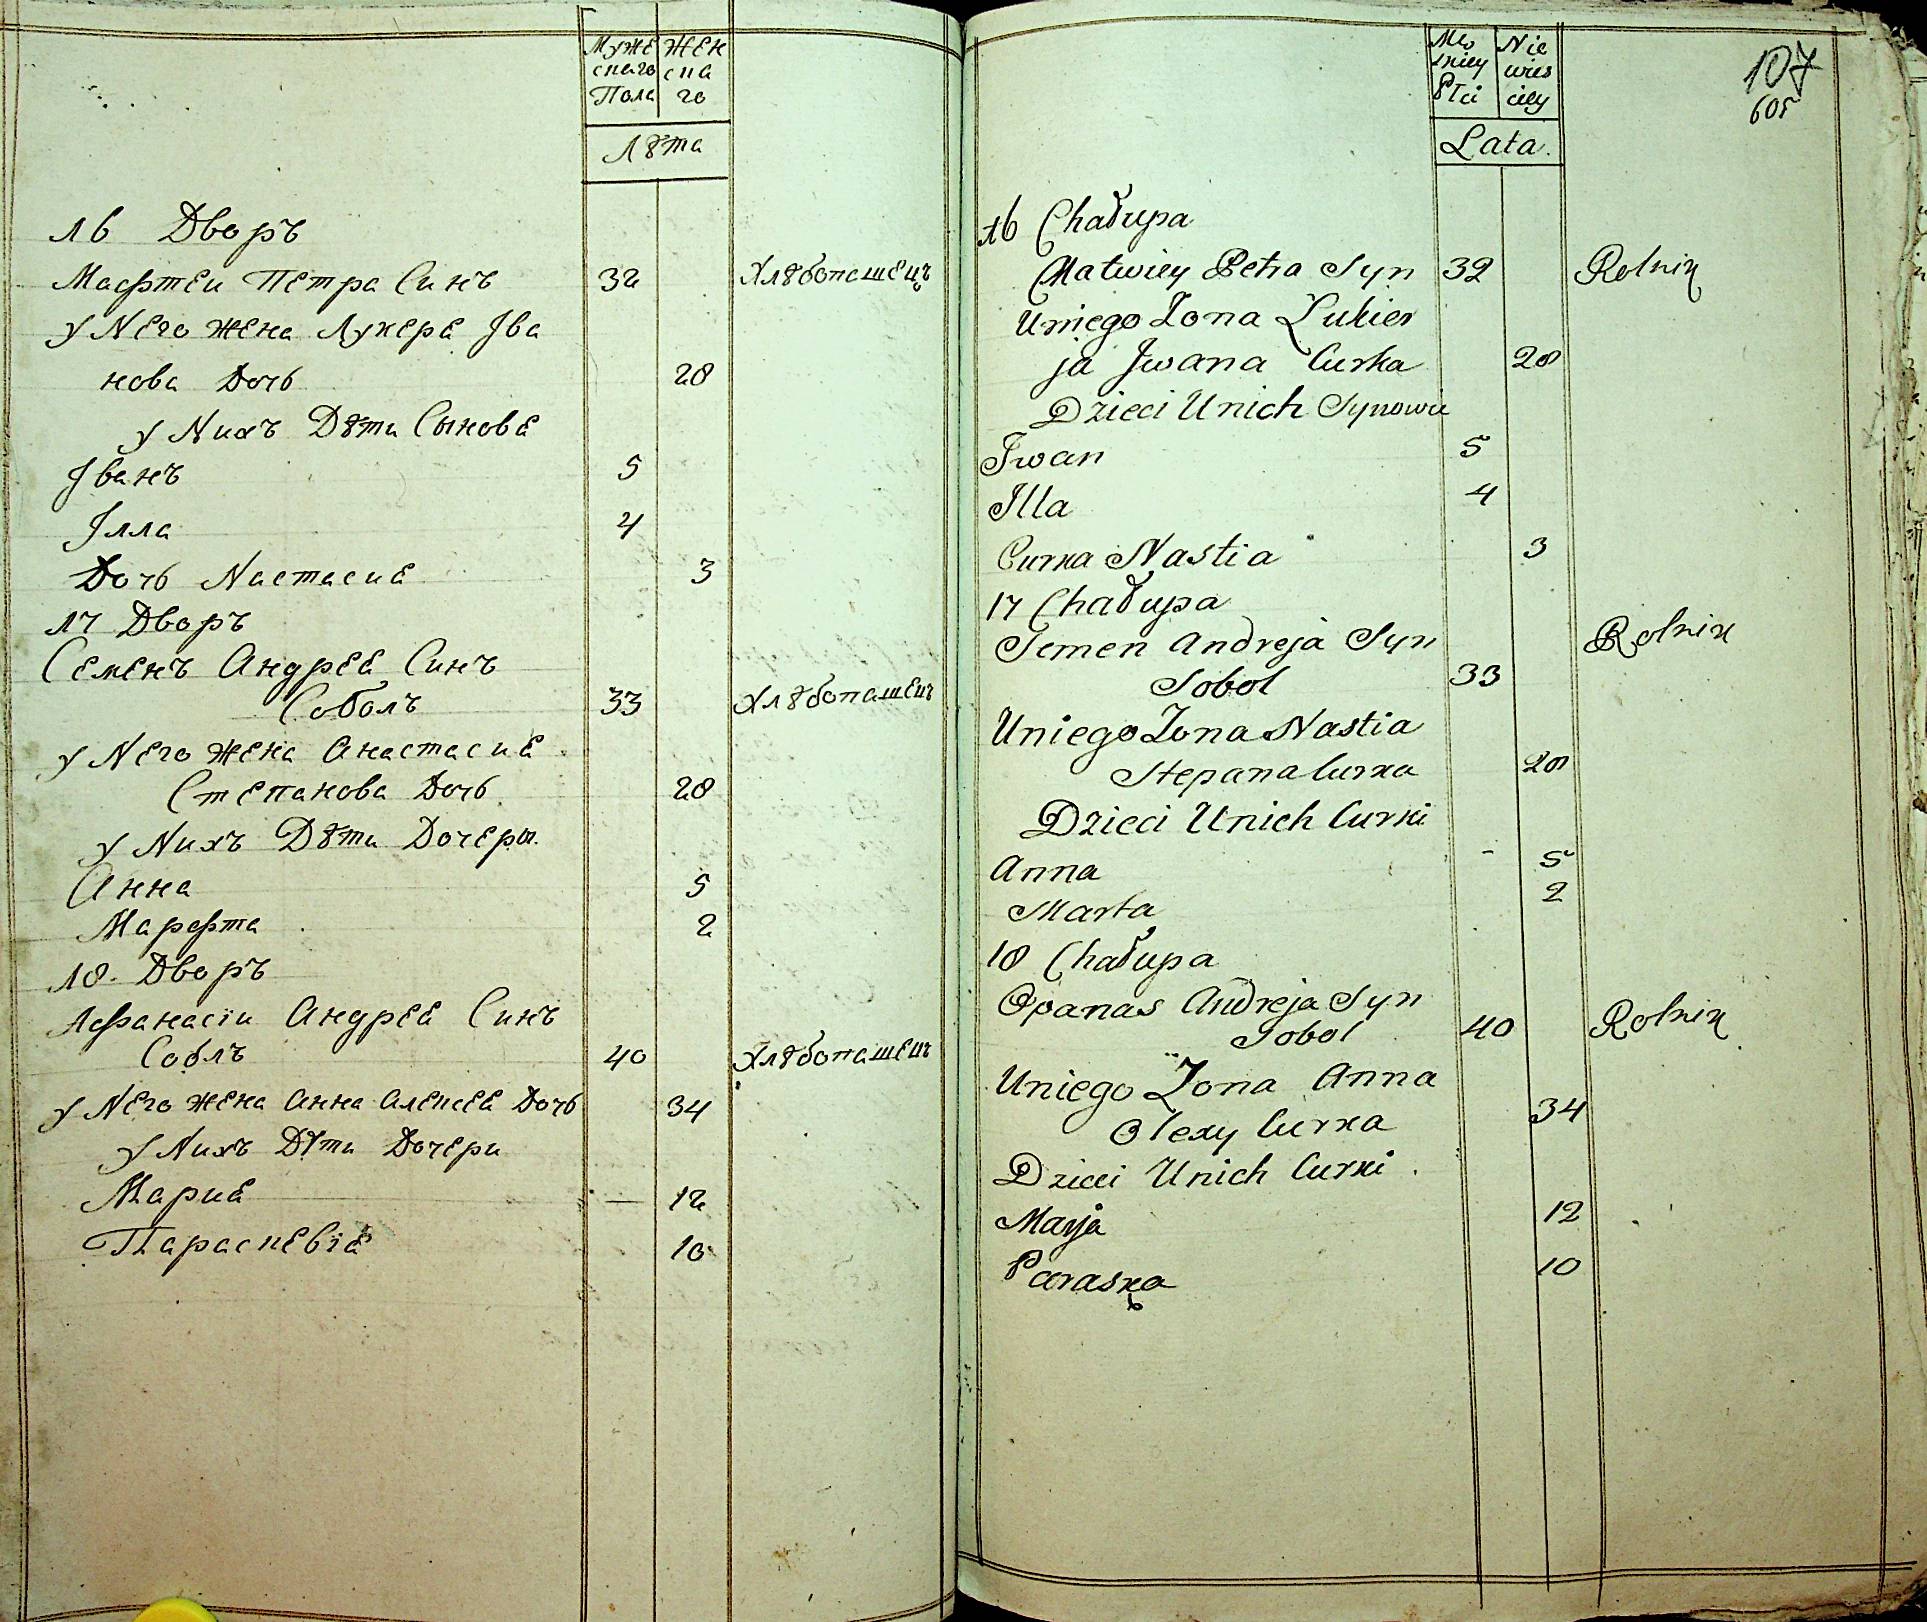 Муже
скаго
Пола
Жен
ска
го
Лѣта
16 Дворъ
Мафтеи Петра Синъ 32 Хлѣбопашецъ
у Него жена Лукера Ива
нова Дочь 28
у Нихъ Дѣти Сынове
Іванъ 5
Ілла 4
Дочь Настасиа 3
17 Дворъ
Семенъ Андреа Синъ
Соболъ 33 Хлѣбопашецъ
у Него жена Анастасиа
Степанова Дочь 28
у Нихъ Дѣти Дочеры.
Анна 5
Марфта 2
18. Дворъ
Афанасіи Андреа Синъ
Соблъ 40 Хлѣбопашецъ
у Него жена Анна Алексеа Дочь 34
у Нихъ Дѣти Дочери
Мариа — 12
Параскевіа 10
Męs
kiey
Płci
Nie
wies
ciey
Lata.
107
605
16 Chałupa
Matwiey Petra Syn 32 Rolnik
Uniego Zona Lukier
ja Jwana Curka 28
Dzieci Unich Synowie
Jwan 5
Illa 4
Curka Nastia 3
17 Chałupa
Semen Andreja Syn Rolnik
Sobol 33
Uniego Zona Nastia
Stepana Curka 28
Dzieci Unich Curki
Anna - 5
Marta 2
18 Chałupa
Opanas Andreja Syn
Sobol 40 Rolnik
Uniego Zona Anna
Olexy Curka 34
Dzieci Unich Curki.
Marja 12
Paraska 10